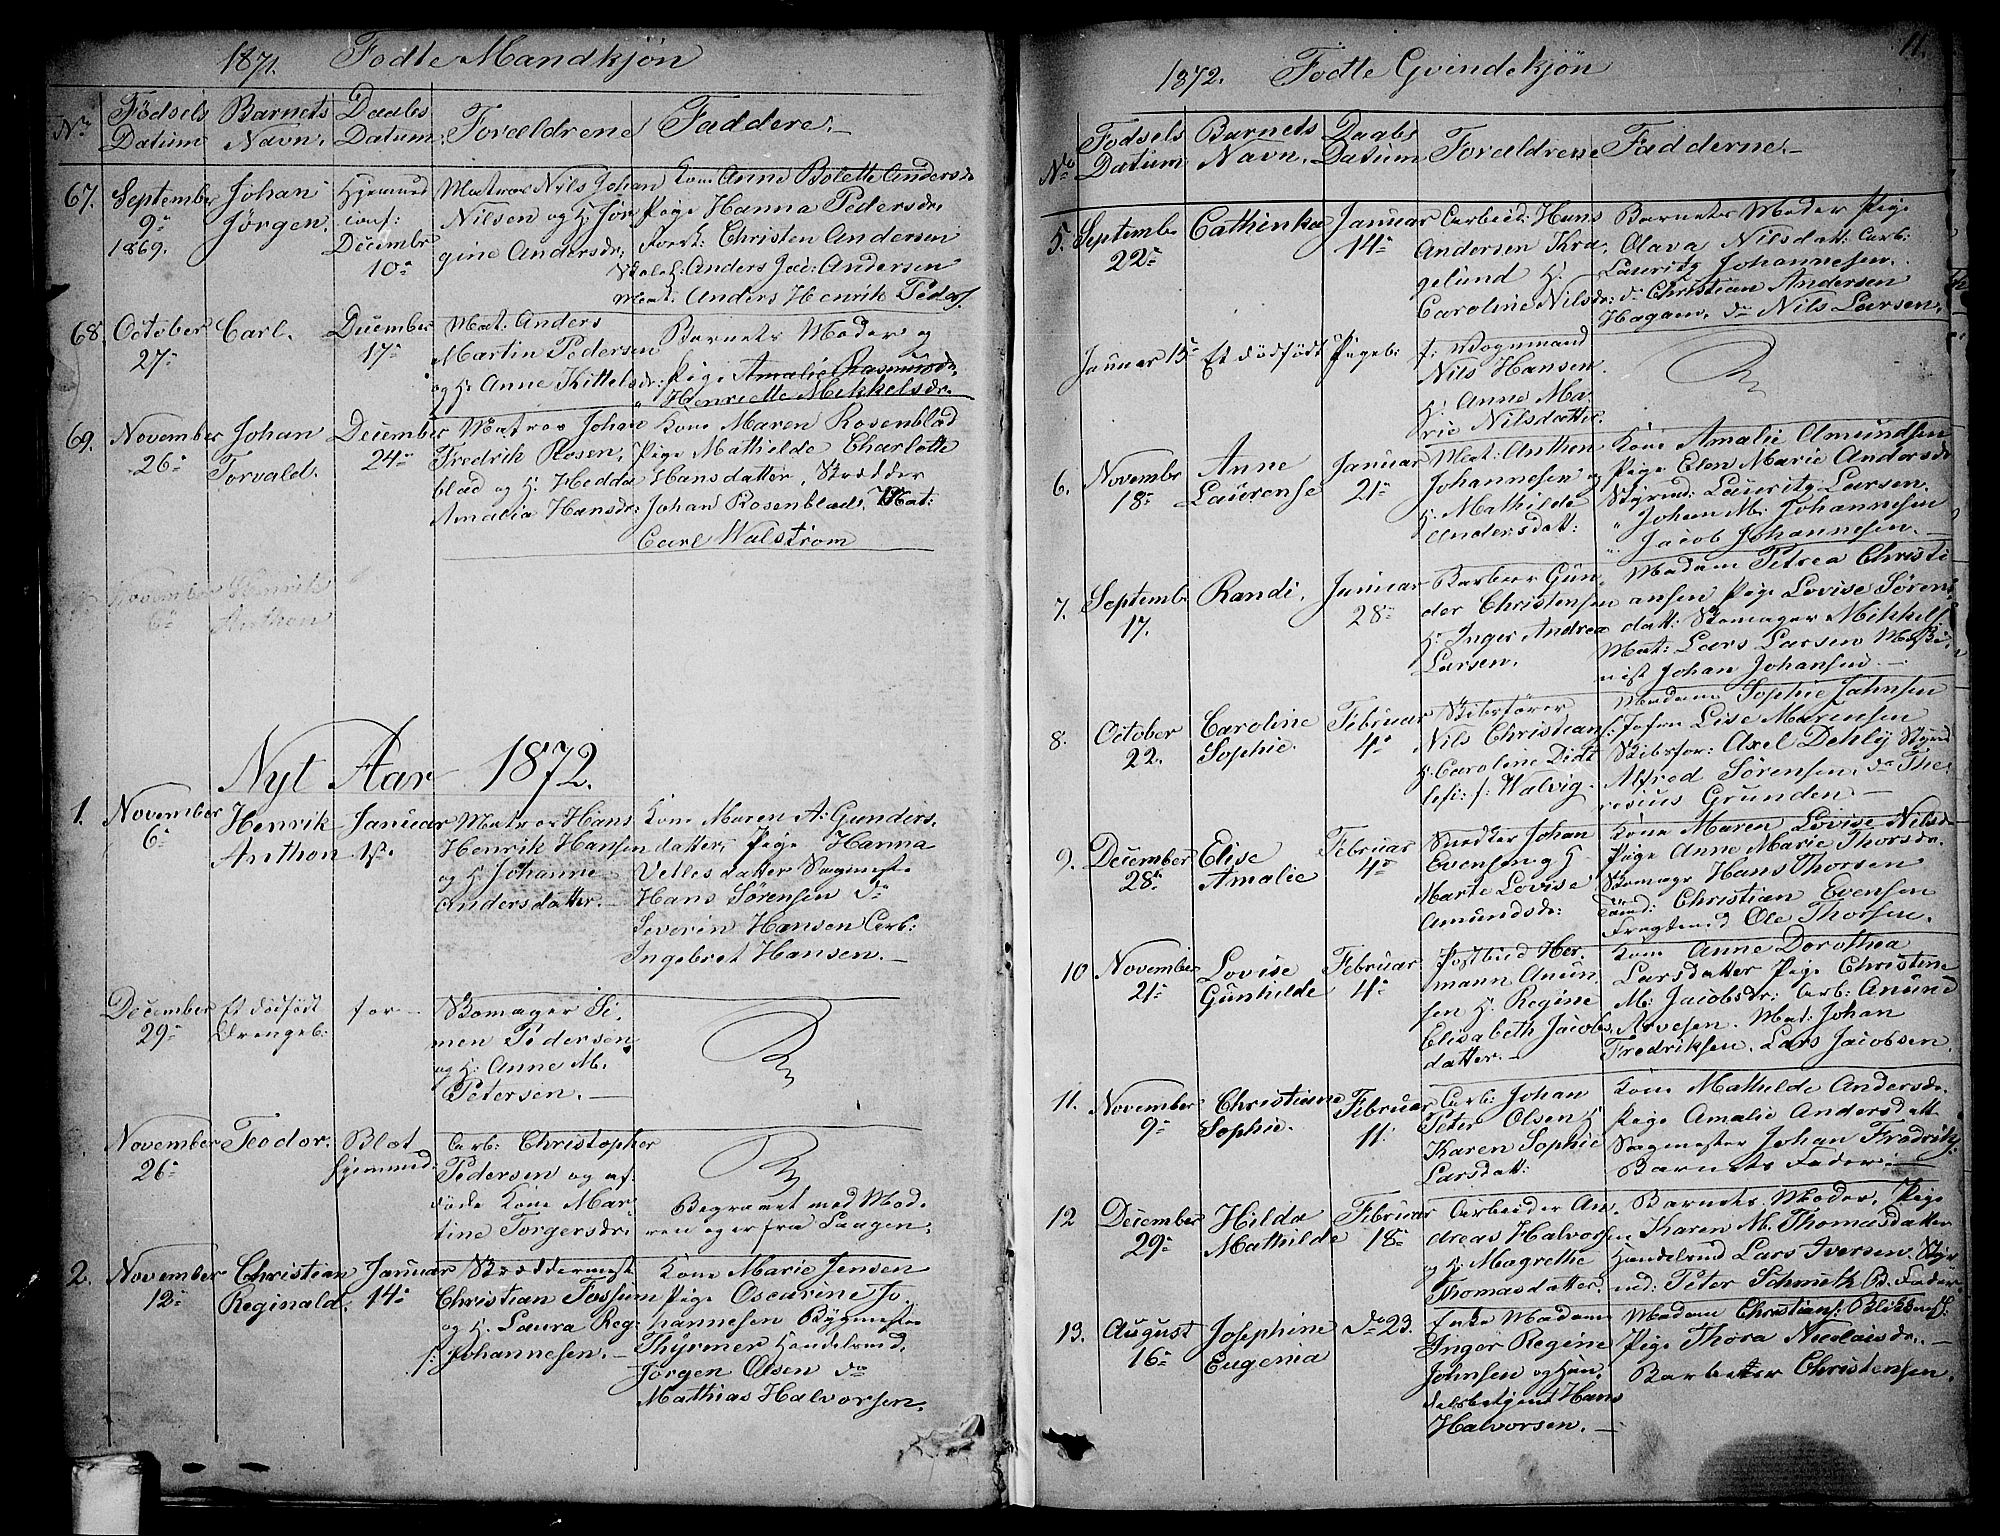 1871. Födte Mandkjøn
No Fødsels Datum Barnets Navn. Daabs Datum. Forældrene Faddere.
67. September 9de 1869. Johan Jörgen. Hjemmed conf: Decembr 10de
Matros Nils Johan
Nilsen og H. Jør
gine Andersdr:
Kone Anne Bolette Andersdr
Pige Hanna Pedersdr:
Christen Andersen
Anders Jac: Andersen
Mat: Anders Henrik Peders.
68. October 27de Carl. December 17de
Mat: Anders
Martin Pedersen
og H. Anne Kittelsdr:
Barnets Moder og
Pige Amalie Rasmusdr.
Henriette Mikkelsdr.
69. November 26de Johan Torvald. December 24de
Matros Johan
Fredrik Rosen,
blad og H. Hedda
Amalia Hansdr:
Kone Maren Rosenblad
Pige Mathilde Charlotte
Hansdatter, Skrædder
Johan Rosenblad, Mat:
Carl Walström
November 6de Henrik Anthon
Nyt Aar 1872.
1. November 6de Henrik Anthon Januar 1st.
Matros Hans
Henrik Hansen
og H. Johanne
Andersdatter.
Kone Maren A: Gunders.
datter, Pige Hanna
Vetlesdatter Sagmest.
Hans Sørensen do
Severin Hansen Arb:
Ingebret Hansen.
December 29de Et dödfödt Drengeb: for
Skomager Si,
men Pedersen
og H. Anne M.
Petersen.
November 26de Teodor. Blot hjemmed.
Arb: Christopher
Pedersen og af,
döde Kone Mar,
tine Torgersdr:
Begravet med Mode
ren og er fra Langen:
2. November 12de Christian Reginald. Januar 14de
Skræddermest
Christian Fossum
og H. Laura Reg:
f: Johannesen.
Kone Marie Jensen
Pige Oscarine Jo,
hannesen Bygmester
Thyrmer Handelsmd.
Jørgen Olsen do
Mathias Halvorsen.
11.
1872. Födte Qvindekjön
No Fodsels Datum Barnets Navn. Daabs Datum Forældrene Fadderne.
5. Septembr 22de Cathinka Januar 14de
Arbeid: Hans
Andersen Kra,
gelund H.
Caroline Nilsdr:
Barnets Moder Pige
Olava Nilsdatt: Arb:
Lauritz Johannesen.
do Christian Andersen
Hagan. do Nils Larsen.
Januar 15de Et dödfödt Pigeb:
f: Vognmand
Nils Hansen.
H. Anne Ma,
rie Nilsdatter
6. Novembr 18de Anne Laurense Januar 21de
Mat: Anthon
Johannesen og
H. Mathilde
Andersdatt:
Kone Amalie Amundsen
Pige Elen Marie Andersdr
Styrmd: Lauritz Larsen.
" Johan M: Johannesen
" Jacob Johannesen.
7. Septemb 17. Randi. Januar 28de
Barbeer Gun,
der Christensen
H. Inger Andrea
Larsen.
Madam Petrea Christi
ansen Pige Lovise Sørens,
datt: Skomager Mikkels
Mat: Lars Larsen Maski,
nist Johan Johansen
8. October 22. Caroline Sophie. Februar 4de
Skibsfører
Nils Christians:
H. Caroline Didt
lefi: f: Walvig.
Madam Sophie Jahnsen
Jofru Lise Mörensen
Skibsför: Axel Dehly Styrmd
Alfred Sørensen, do The,
resius Grunden
9. December 28de Elise Amalie Februar 4de
Snedker Johan
Evensen og H.
Marte Lovise
Amundsdr:
Kone Maren Lovise Nilsdr
Pige Anne Marie Thorsdr.
Skomagr Hans Thorsen
Tömd: Christian Evensen
Fragtemd Ole Thorsen.
10 November 21de Lovise Gunhilde Februar 4de
Postbud Her,
mann Anun,
sen H. Regine
Elisabeth Jacobs,
datter.
Kone Anne Dorothea
Larsdatter Pige Christine
M: Jacobsdr: Arb: Anund
Arvesen. Mat: Johan
Fredriksen. Lars Jacobsen.
11. November 9de Christiane Sophie. Februar 11.
Arb: Johan
Peter Olsen H.
Karen Sophie
Larsdatt:
Kone Mathilde Andersdr.
Pige Amalie Andersdatt
Sagmester Johan Fredriks.
Barnets Fader.
12 December 29de Hilda Mathilde Februar 18de
Arbeider An,
dreas Halvorsen
og H. Magrethe
Thomasdatter.
Barnets Moder, Pige
Karen M. Thomasdatter
Handelsmd Lars Iversen. Styr
md: Peter Schmelk B. Fader
13. August 16de Josephine Eugenia do 23.
Enke Madam
Inger Regine
Johnsen og Han,
delsbetjent Hans
Halvorsen.
Madam Christians: Blikkensl:
Pige Thora Nicolaisdr.
Barbeer Christensen.